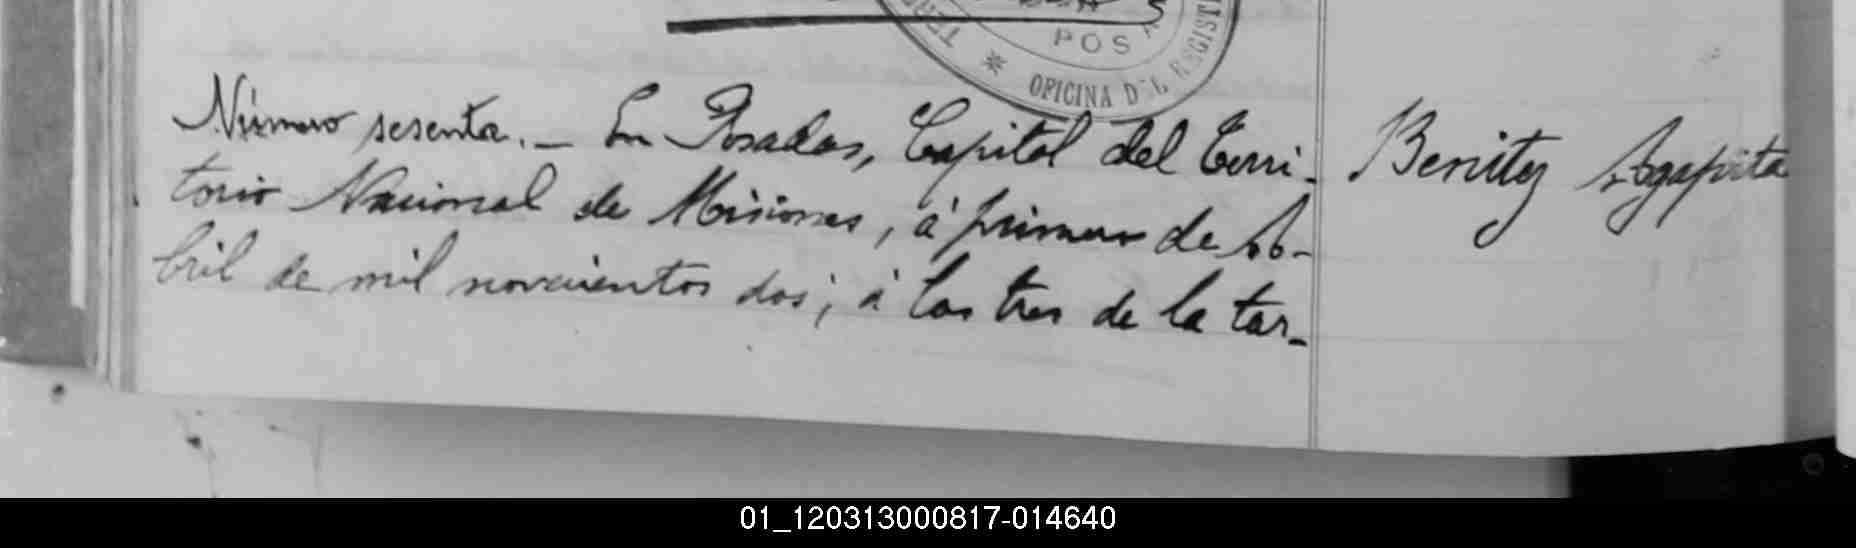 POSA
OFICINA DEL REGIST
Número sesenta. — En Posadas, Capital del Terri-
torio Nacional de Misiones, á primero de A-
bril de mil novecientos dos, á las tres de la tar-
Benitez Agapita
01_120313000817-014640